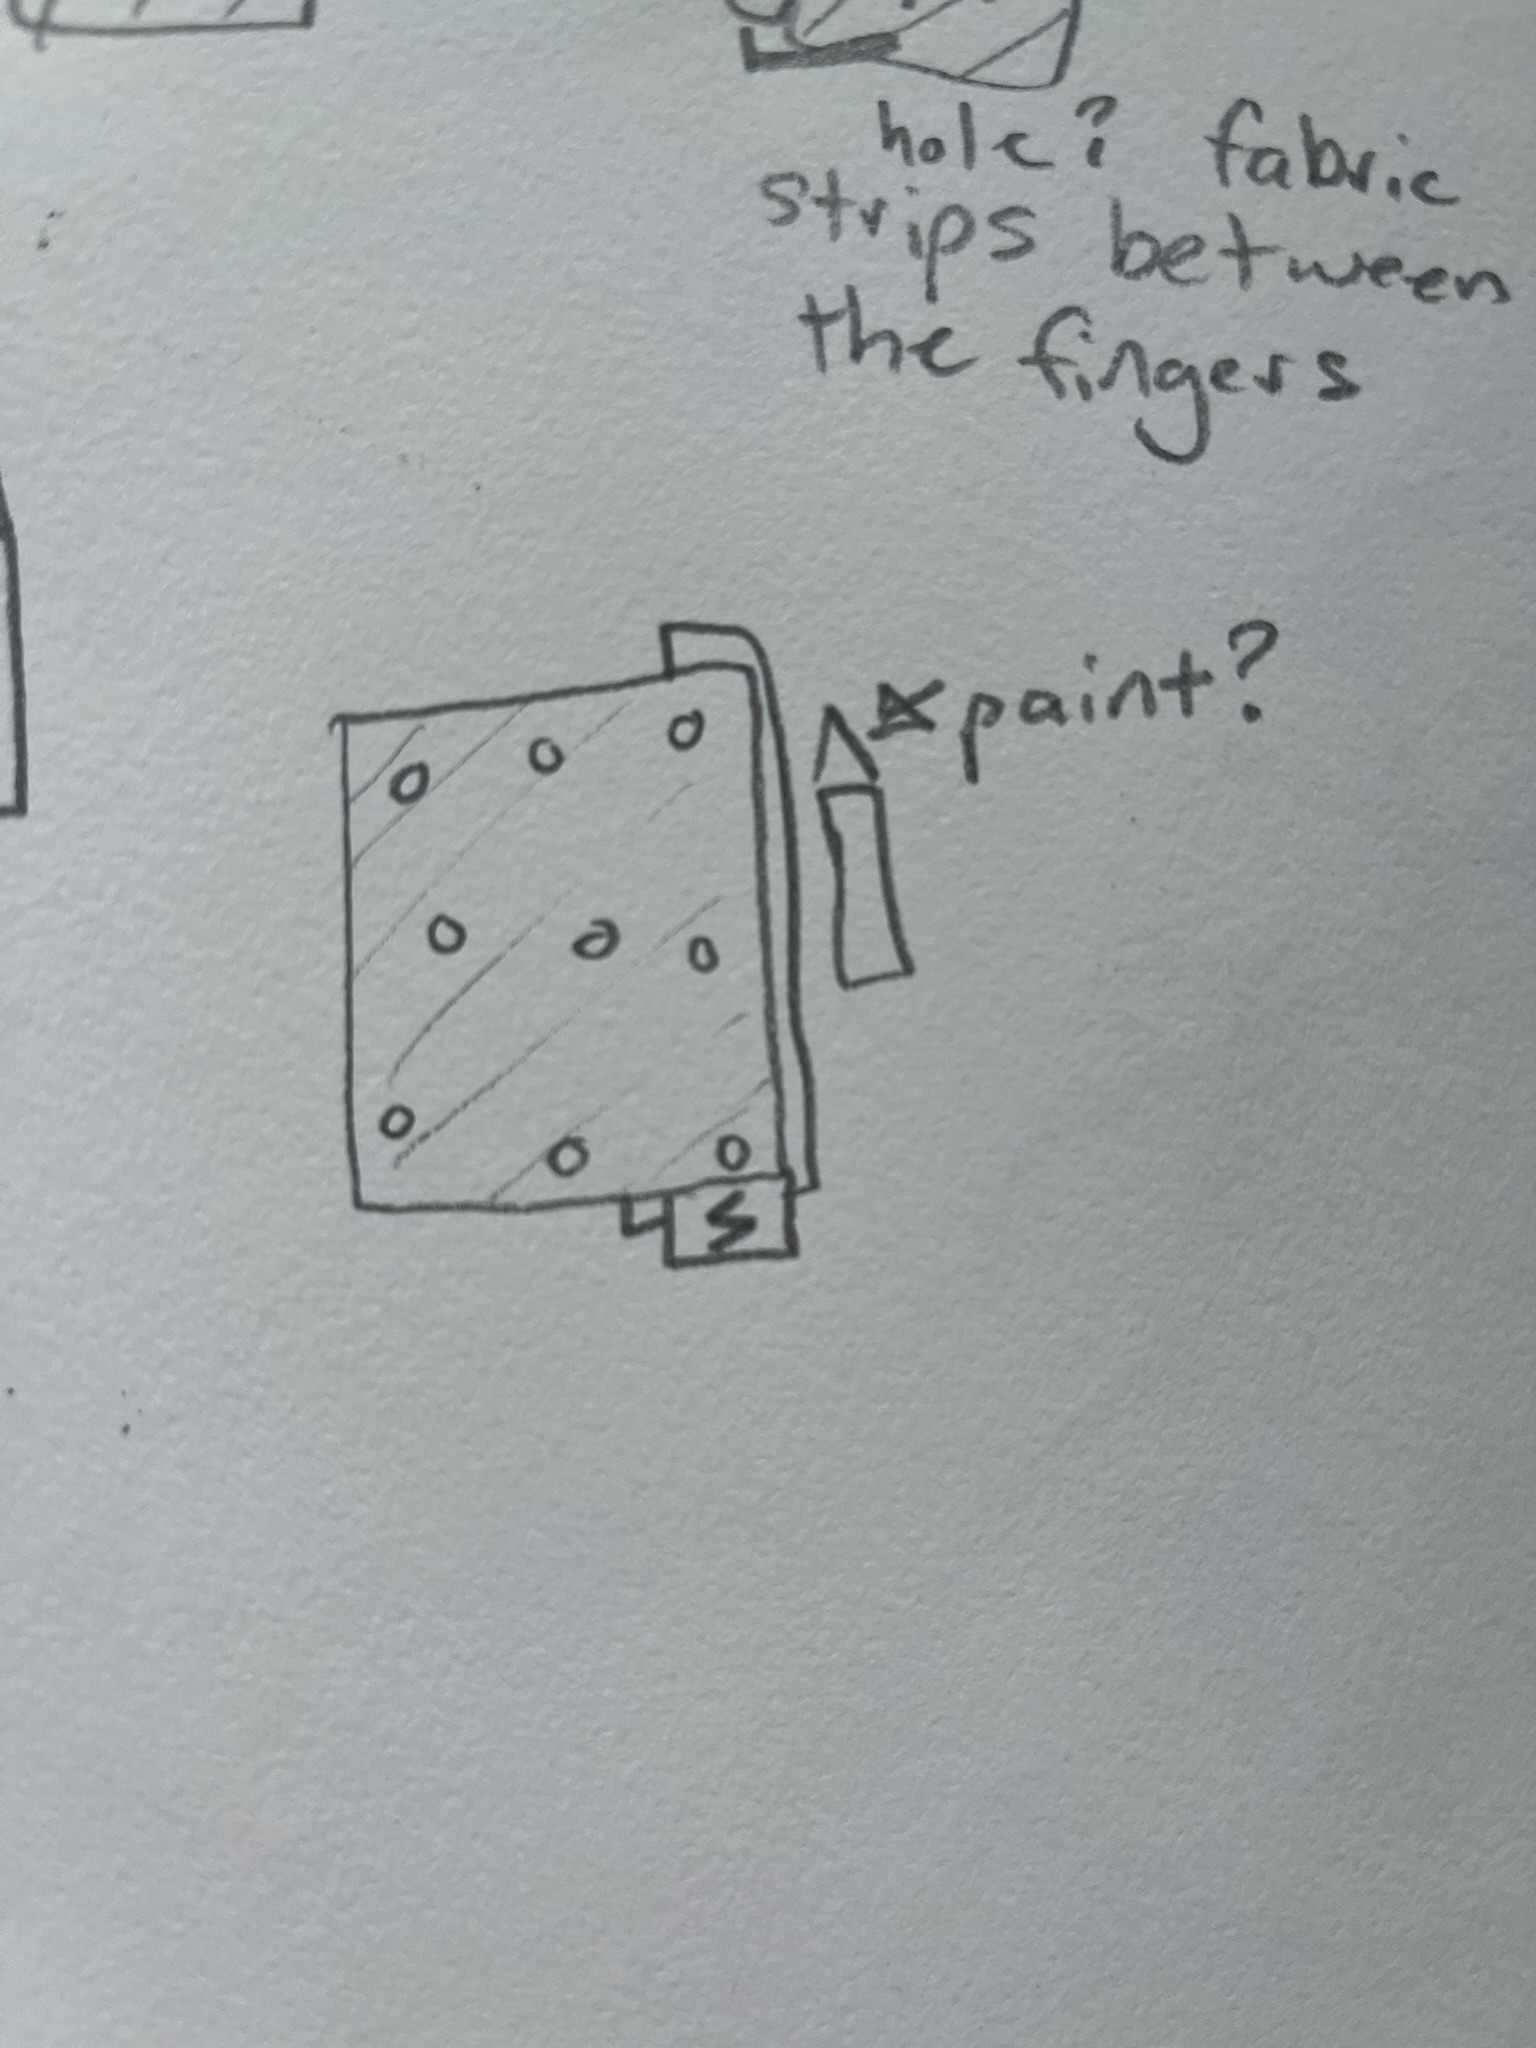 hole? fabric
strips between
the fingers
paint?